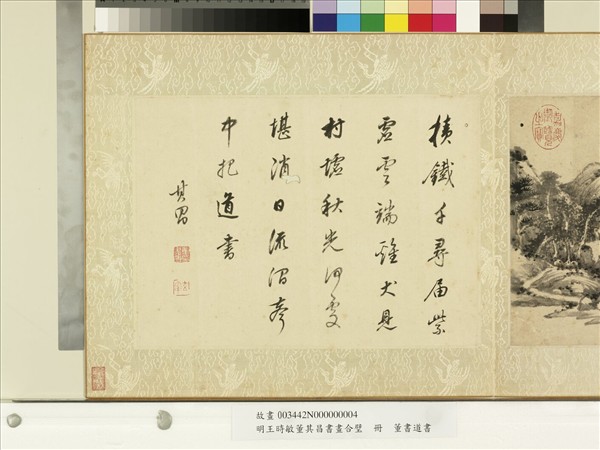 積鐵千尋屆紫
虛雲端雞犬見
村墟秋光何處
堪消日流澗聲
中把道書
其昌
故畫 003442N000000004
明王時敏董其昌書畫合璧　冊　董書道書